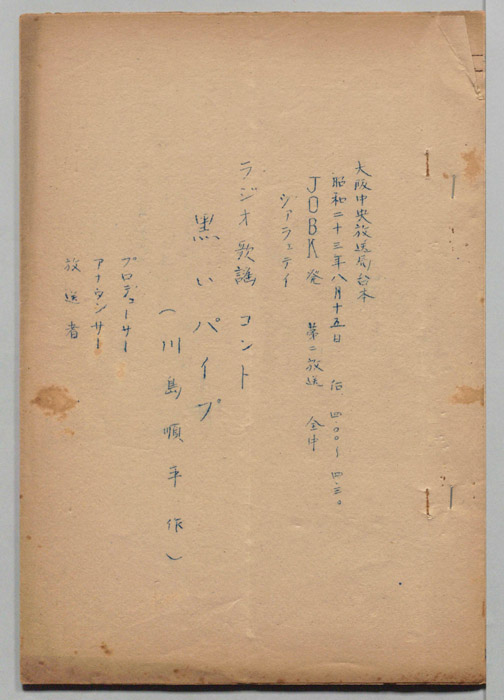 大阪中央放送局台本
昭和二十三年八月十五日 后 四.〇〇〜四.三〇
JOBK発 第二放送 全中
ヴァラエティ
ラジオ歌謡コント
黒いパイプ
(川島順平作)
プロデューサー
アナウンサー
放送者